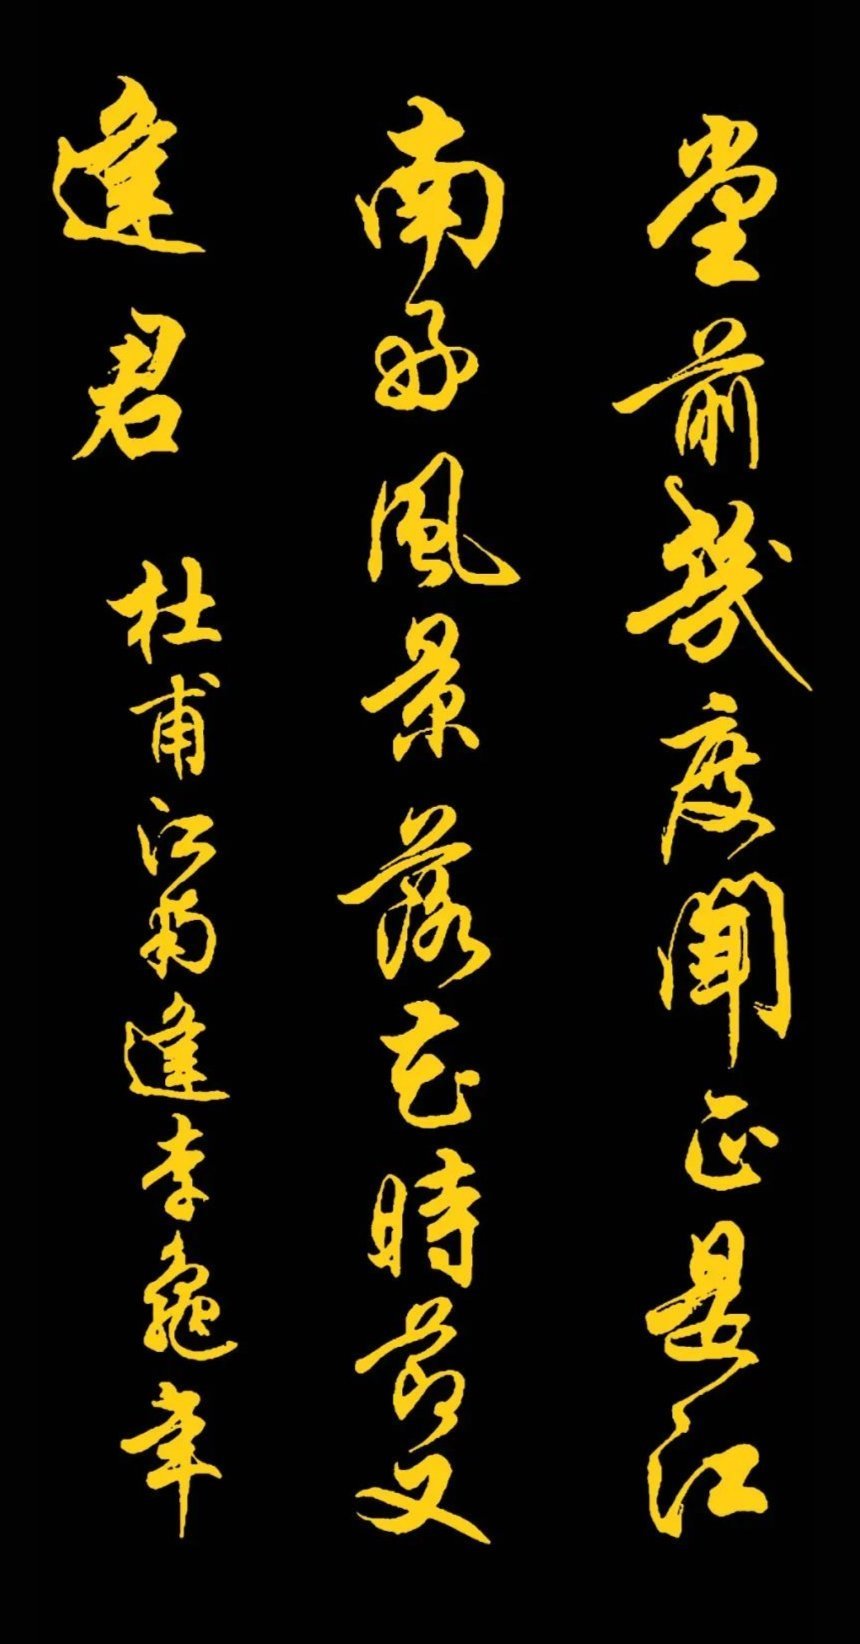 堂前幾度聞正是江
南好風景落花時節又
逢君
杜甫江南逢李龜年